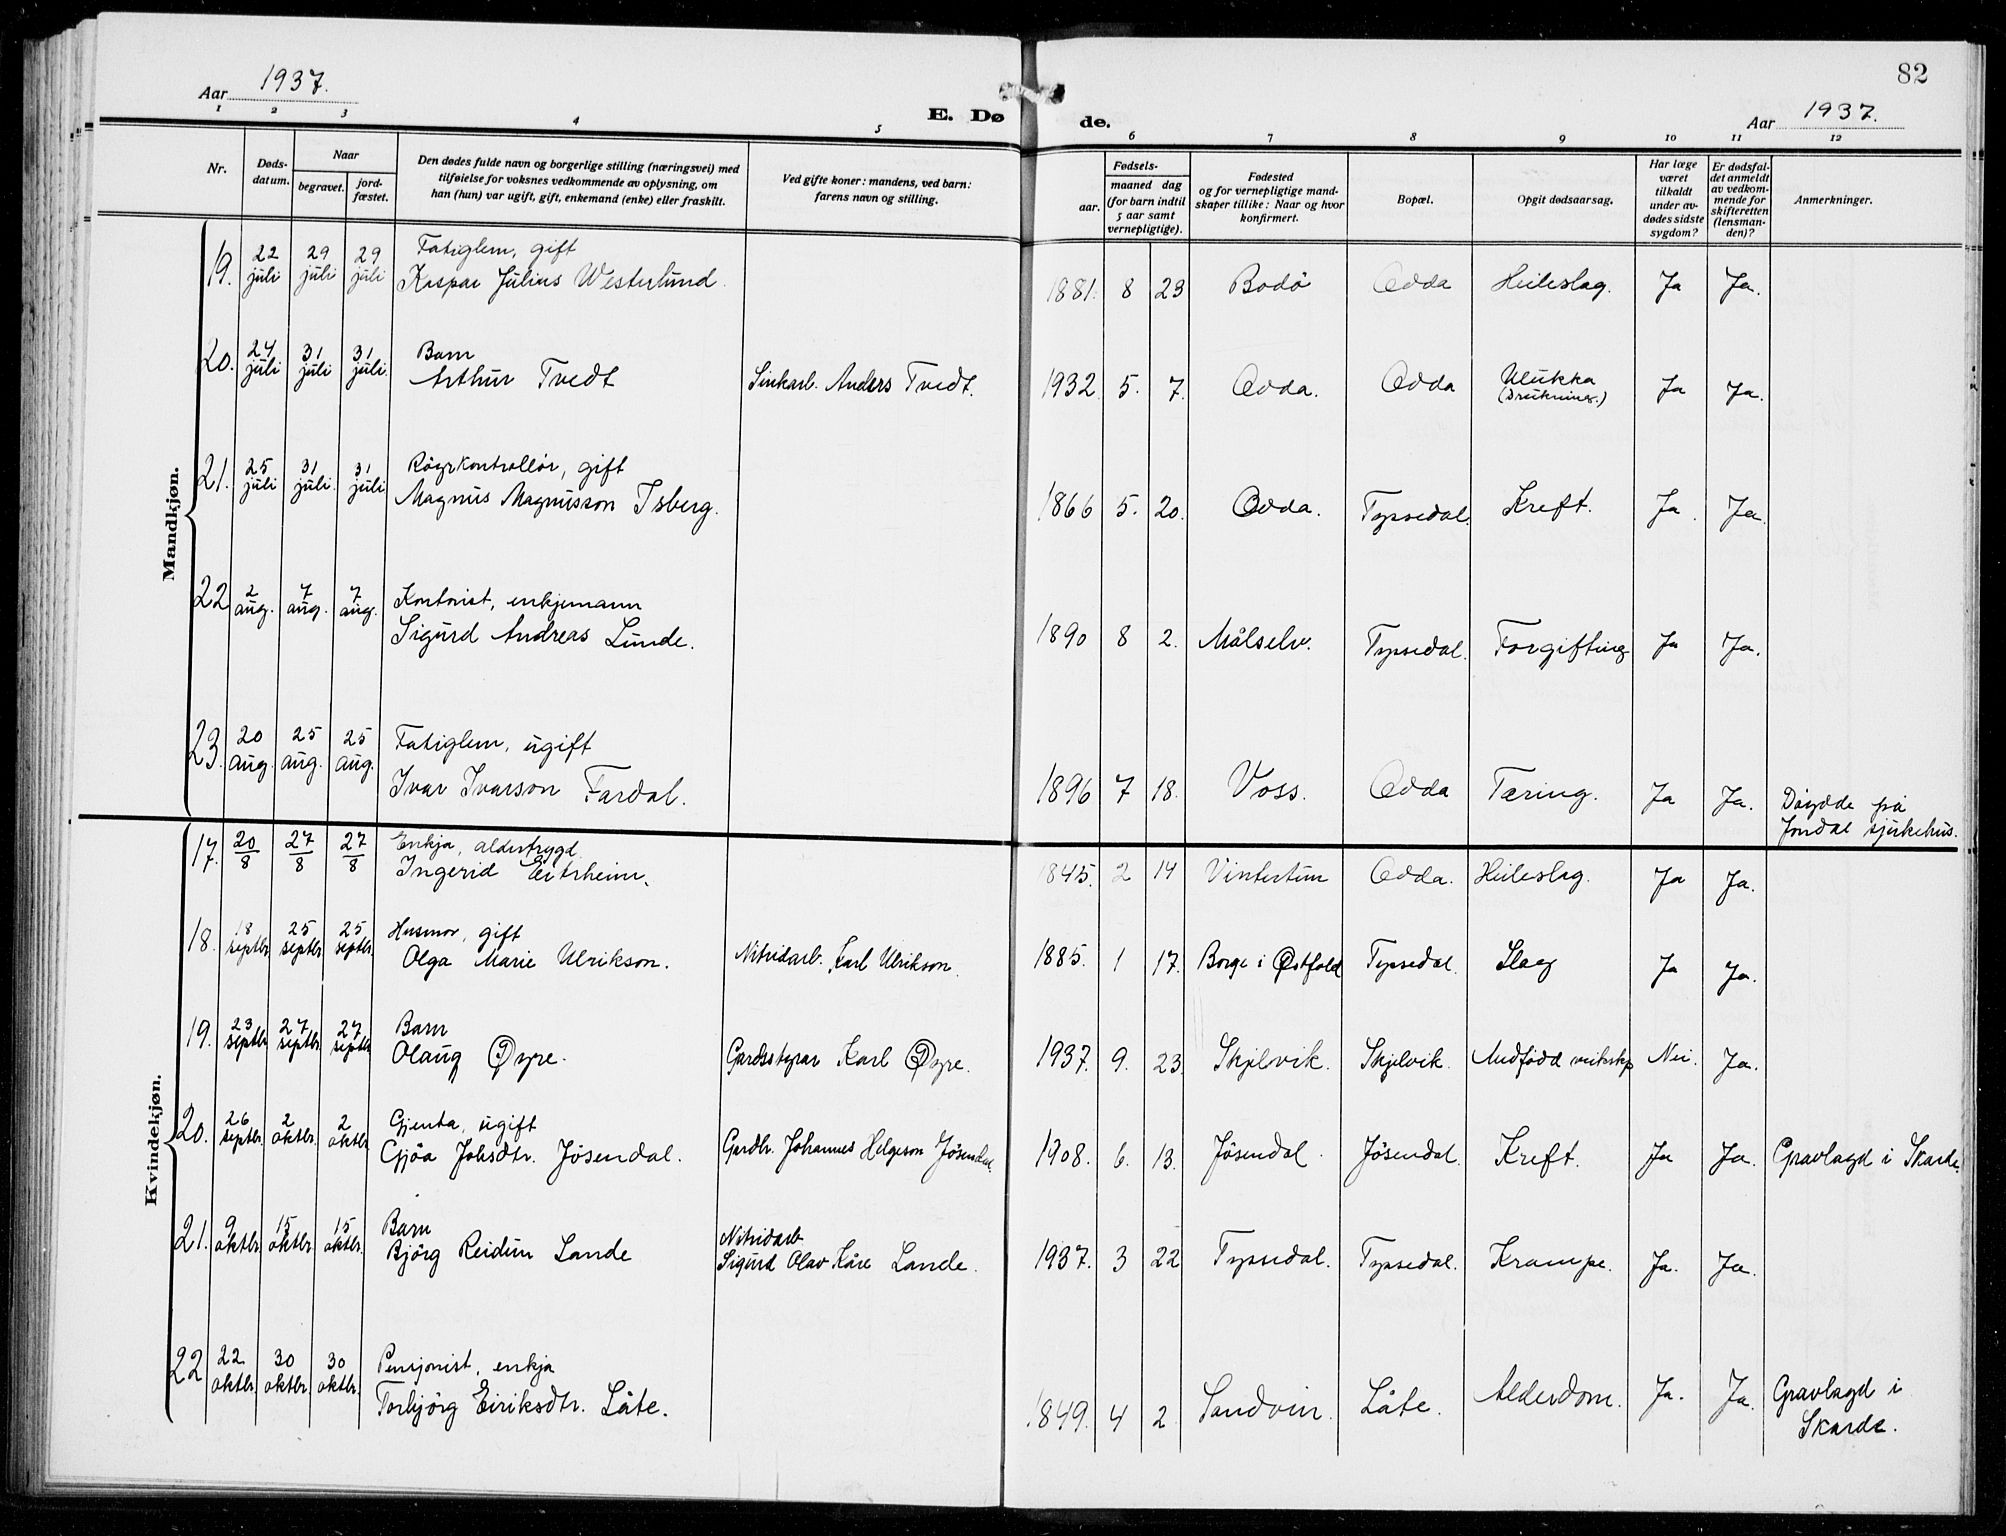 Aar 1937.
E. Døde.
82
Aar 1937.
1 2 3 4 5 6 7 8 9 10 11 12
Nr.
Døds-
datum.
Naar
begravet.
jord-
fæstet.
Den dødes fulde navn og borgerlige stilling (næringsvei) med
tilføielse for voksnes vedkommende av oplysning, om
han (hun) var ugift, gift, enkemand (enke) eller fraskilt.
Ved gifte koner: mandens, ved barn:
farens navn og stilling.
Fødsels-
aar.
maaned dag
(for barn indtil
5 aar samt
vernepligtige).
Fødested
og for vernepligtige mand-
skaper tillike: Naar og hvor
konfirmert.
Bopæl.
Opgit dødsaarsag.
Har læge
været
tilkaldt
under av-
dødes sidste
sygdom?
Er dødsfal-
det anmeldt
av vedkom-
mende for
skifteretten
(lensman-
den)?
Anmerkninger.
Mandkjøn.
19. 22 juli 29 juli 29 juli Fatiglem, gift
Kaspar Julius Westerlund. 1881. 8 23 Bodö Odda Heileslag. Ja Ja.
20. 24 juli 31 juli 31 juli. Barn
Arthur Tvedt Sinkarb. Anders Tvedt. 1932. 5. 7. Odda. Odda Ulukka Ja Ja.
(Drukning.)
21. 25 juli 31 juli. 31 juli Röyrkontrollör, gift
Magnus Magnusson Isberg. 1866 5. 20. Odda. Tyssedal. Kreft. Ja. Ja.
22 2 aug. 7 aug. 7 aug. Kontorist, enkjemann
Sigurd Andreas Lunde. 1890 8 2. Målselv. Tyssedal. Forgifting Ja Ja.
23. 20 aug. 25 aug. 25 aug. Fatiglem, ugift
Ivar Ivarson Fardal. 1896 7 18. Voss. Odda Tæring. Ja Ja. Döydde på
Jondal sjukehus.
Kvindekjøn.
17. 20/8 27/8 27/8 Enkja, alderstrygd
Ingerid Eitrheim. 1845. 2 14 Vintertun Odda. Heileslag. Ja Ja.
18. 18 septbr. 25 septbr. 25 septbr. Husmor, gift
Olga Marie Ulrikson. Nitridarb. Karl Ulrikson. 1885. 1 17. Borge i Østfold Tyssedal. Slag Ja Ja.
19. 23 septbr 27 septbr 27 septbr Barn
Olaug Øyre. Gardsstyrar Karl Øyre. 1937. 9. 23. Skjelvik. Skjelvik. Medfödd veikskap Nei. Ja.
20. 26 septbr. 2 oktbr. 2 oktbr Gjenta, ugift
Gjöa Johsdtr. Jösendal. Gardbr. Johannes Helgeson Jösendal. 1908. 6. 13. Jösendal. Jösendal. Kreft. Ja Ja. Gravlagd i Skarde.
21. 9 oktbr. 15 oktbr. 15 oktbr. Barn
Björg Reidun Lande Nitridarb.
Sigurd Olav Kåre Lande. 1937. 3 22 Tyssedal. Tyssedal. Krampe. Ja. Ja.
22 22 oktbr. 30 oktbr. 30 oktbr. Pensjonist, enkja
Torbjörg Eiriksdtr. Låte. 1849. 4 2. Sandvin. Låte. Alderdom. Ja. Ja. Gravlagd i
Skarde.